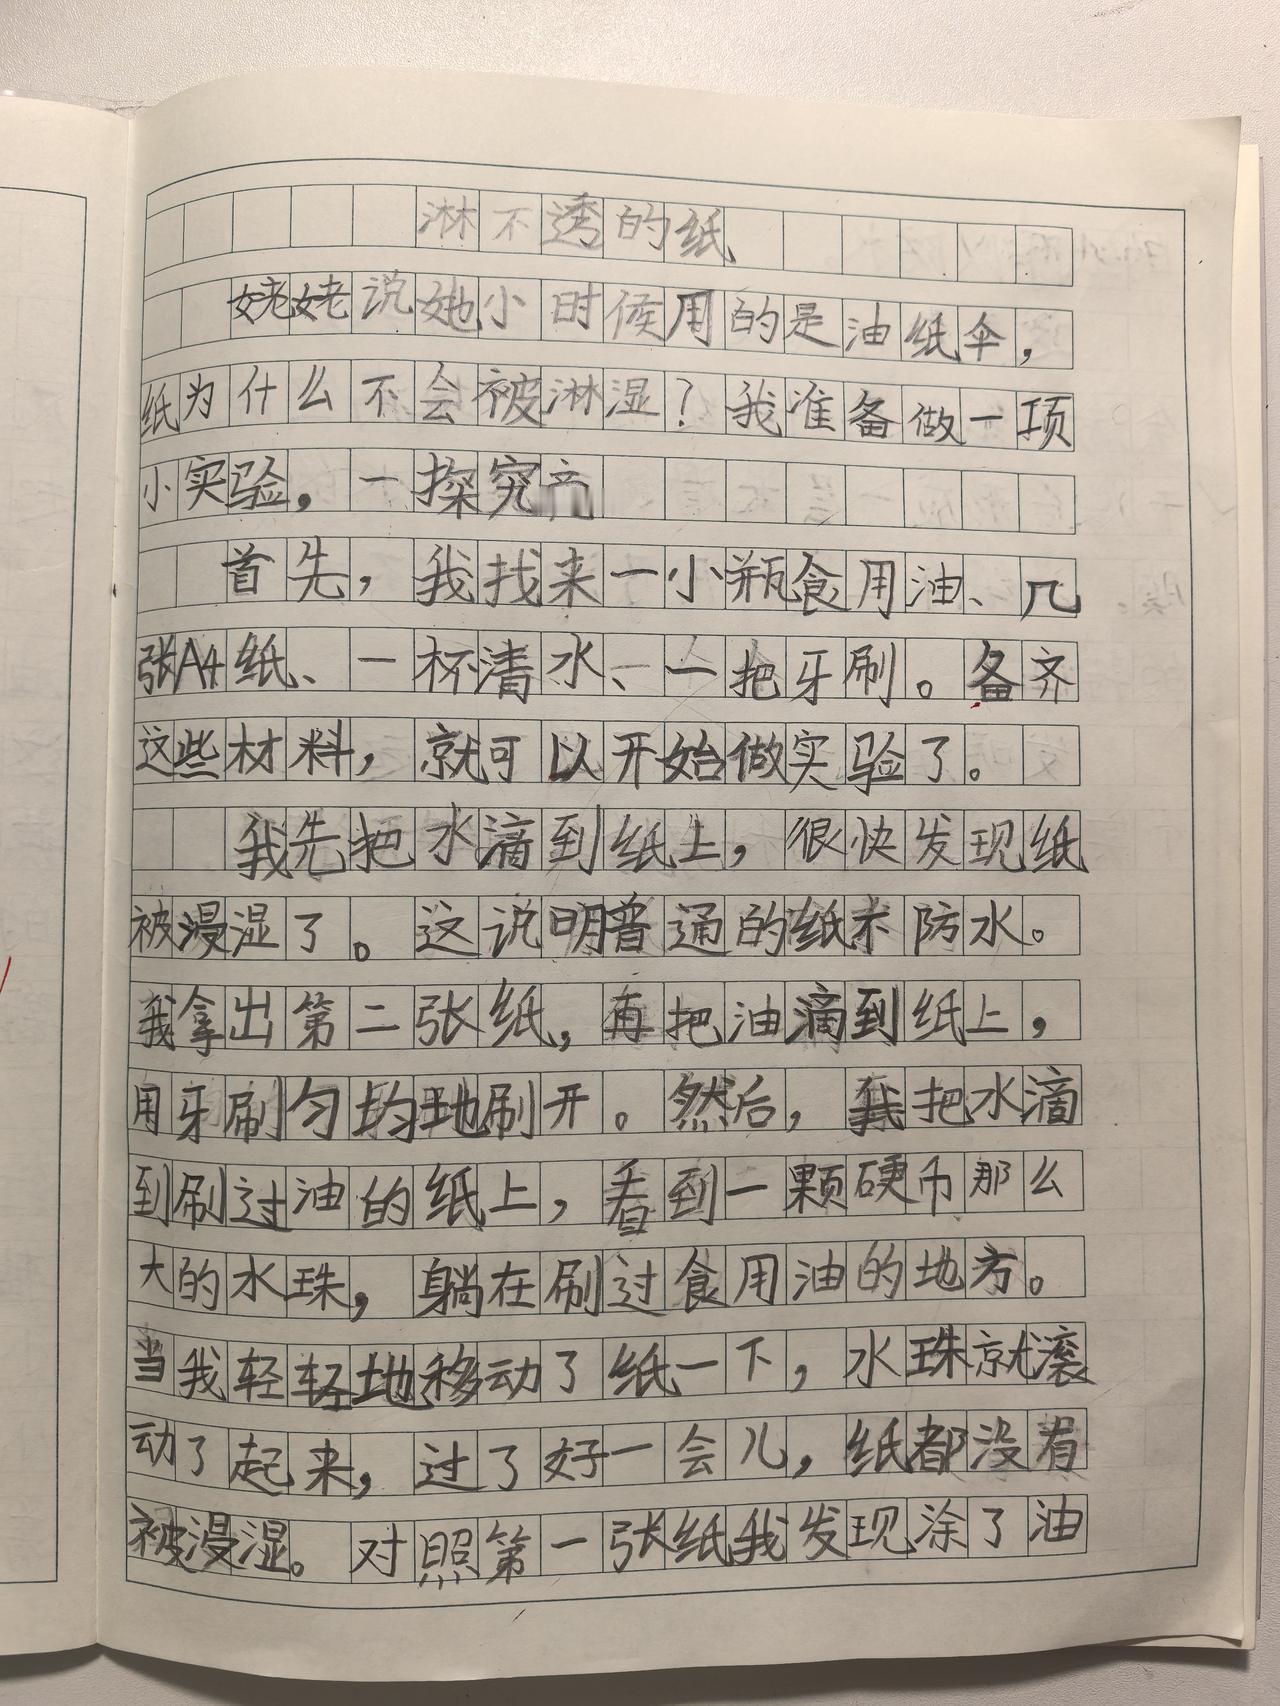 淋不透的纸
姥姥说她小时候用的是油纸伞，
纸为什么不会被淋湿？我准备做一项
小实验，一探究
首先，我找来一小瓶食用油、几
张A4纸、一杯清水、一把牙刷。备齐
这些材料，就可以开始做实验了。
我先把水滴到纸上，很快发现纸
被浸湿了。这说明普通的纸不防水。
我拿出第二张纸，再把油滴到纸上，
用牙刷匀均地刷开。然后，我把水滴
到刷过油的纸上，看到一颗硬币那么
大的水珠，躺在刷过食用油的地方。
当我轻轻地移动了纸一下，水珠就滚
动了起来，过了好一会儿，纸都没有
被浸湿。对照第一张纸我发现涂了油